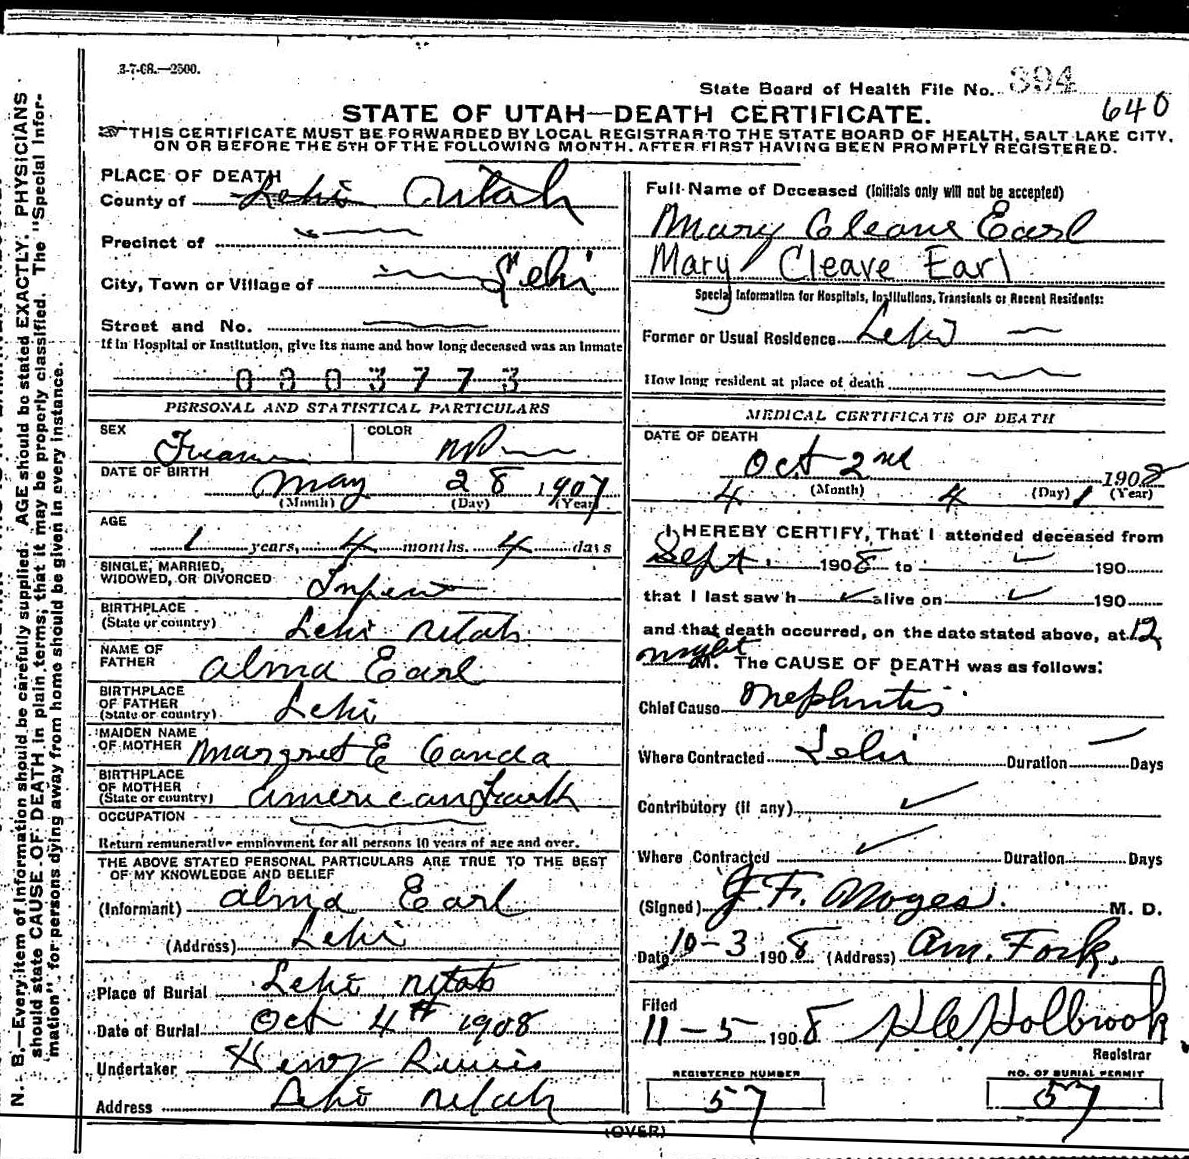 3-7-08.—2500.
State Board of Health File No. 394
640
STATE OF UTAH—DEATH CERTIFICATE.
THIS CERTIFICATE MUST BE FORWARDED BY LOCAL REGISTRAR TO THE STATE BOARD OF HEALTH, SALT LAKE CITY,
ON OR BEFORE THE 5TH OF THE FOLLOWING MONTH, AFTER FIRST HAVING BEEN PROMPTLY REGISTERED.
PLACE OF DEATH
County of Lehi Utah
Precinct of
City, Town or Village of Lehi
Street and No.
If in Hospital or Institution, give its name and how long deceased was an inmate
0 0 0 3 7 7 3
PERSONAL AND STATISTICAL PARTICULARS
SEX
COLOR
DATE OF BIRTH May 28 1907
(Month) (Day) (Year)
AGE
1 years, 4 months. 4 days
SINGLE, MARRIED,
WIDOWED, OR DIVORCED
BIRTHPLACE
(State or country) Lehi Utah
NAME OF
FATHER Alma Earl
BIRTHPLACE
OF FATHER
(State or country) Lehi
MAIDEN NAME
OF MOTHER Margret E
BIRTHPLACE
OF MOTHER
(State or country) American Fork
OCCUPATION
Return remunerative employment for all persons 10 years of age and over.
THE ABOVE STATED PERSONAL PARTICULARS ARE TRUE TO THE BEST
OF MY KNOWLEDGE AND BELIEF
(Informant) Alma Earl
(Address) Lehi
Place of Burial Lehi Utah
Date of Burial Oct 4th 1908
Undertaker Henry
Address Lehi Utah
Full Name of Deceased (Initials only will not be accepted)
Mary Cleave Earl
Mary Cleave Earl
Special Information for Hospitals, Institutions, Transients or Recent Residents:
Former or Usual Residence Lehi
How long resident at place of death
MEDICAL CERTIFICATE OF DEATH
DATE OF DEATH
Oct 2nd 1908
4 (Month) 4 (Day) 1 (Year)
I HEREBY CERTIFY, That I attended deceased from
Sept. 1908 to 190
that I last saw h alive on 190
and that death occurred, on the date stated above, at 12
night M. The CAUSE OF DEATH was as follows:
Chief Cause Nephritis
Where Contracted Lehi Duration Days
Contributory (if any)
Where Contracted Duration Days
(Signed) J. F. Noyes. M. D.
Date 10-3 1908 (Address) Am. Fork.
Filed
11-5 1908 Holbrook
Registrar
REGISTERED NUMBER
57
NO. OF BURIAL PERMIT
57
(OVER)
N. B.—Every item of information should be carefully supplied. AGE should be stated EXACTLY. PHYSICIANS
should state CAUSE OF DEATH in plain terms, that it may be properly classified. The "Special Infor-
mation" for persons dying away from home should be given in every instance.